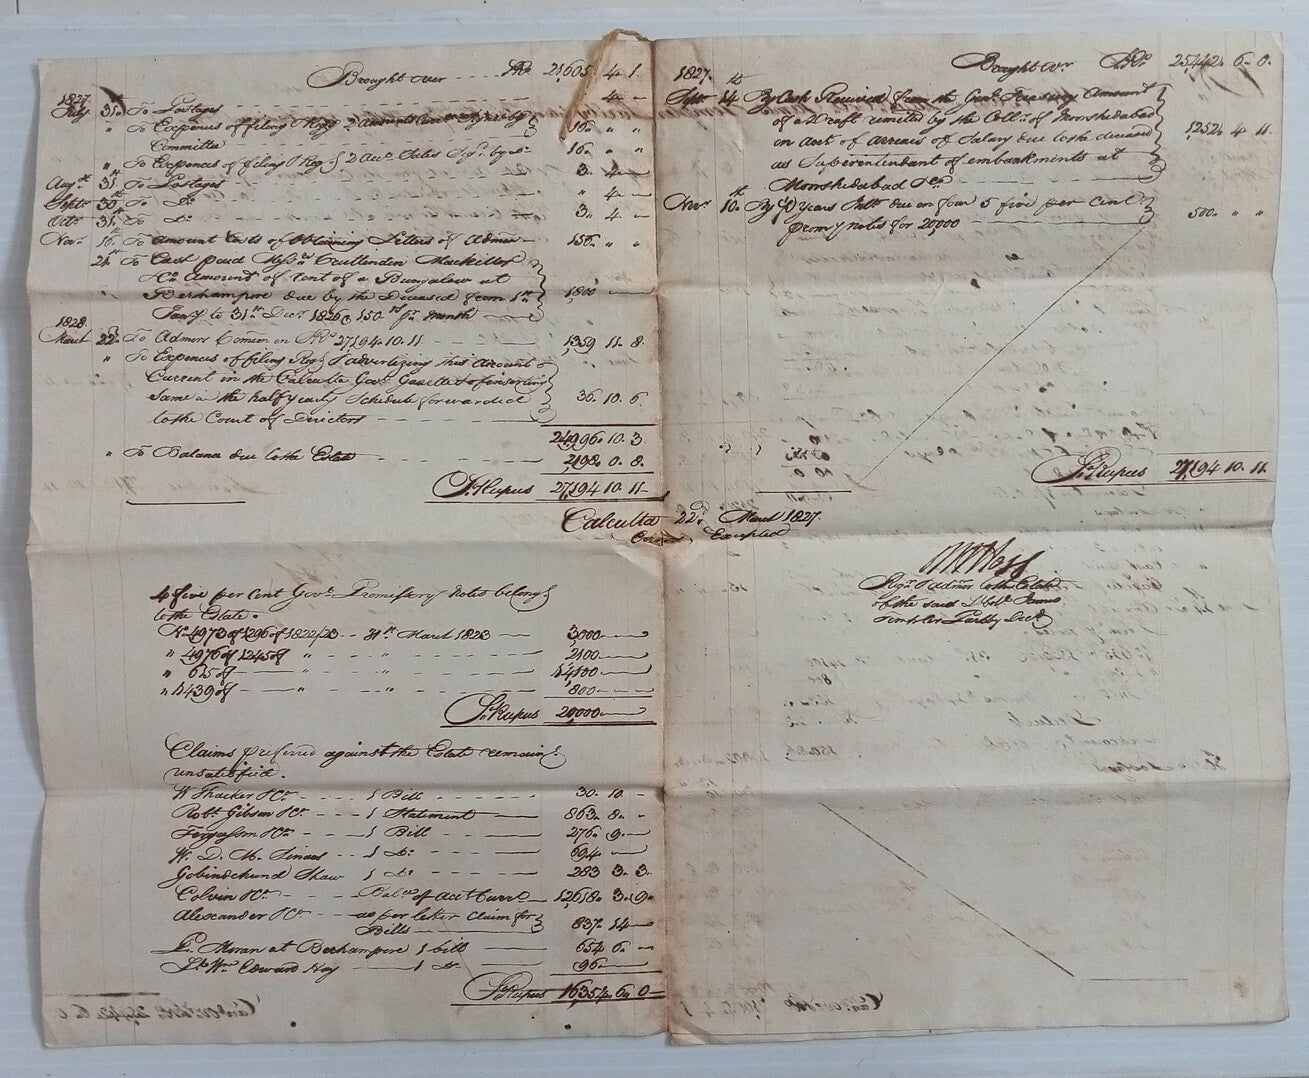 Brought over ---- SRs 21,605 4 1
1827
July 31st To Postages - - - - 4 -
" To Expences of filing Regr & Amount Curt by
Committee 16 " "
" To Expences of filing Regr & 2 Acc. Sales 16 " "
Augst 31st To Postages - - - 3 4
Septr 30th To Do - - - " 4
Octr 31st To Do - - - 3 4
Novr 16th To Amount Costs of Obtaining Letters of Admon 150 " "
21st To Cash paid Messrs Cruttenden Mackillop
& Co Amount of rent of a Bungalow at
Berhampore due by the Deceased from 1st
Jany to 31st Decr 1826 @ 150 pr month 1,800
1828
March 22d To Admors Commn on SRs 27,194.10.11 1,359 11 8
" To Expences of filing Regr & advertizing this Account
Current in the Calcutta Govt Gazette & of inserting
same in the half yearly Schedule forwarded
to the Court of Directors 36 10 6
24,996 10 3
" To Balance due to the Estate 2,198 0 8
Sa Rupees 27,194 10 11
1827 Brought over SRs 25,442 6 0
Septr 14th By Cash Received from the Genl Treasury Amount
of a Draft remitted by the Collr of Moorshedabad
on acct of arrears of Salary due to the deceased
as Superintendant of embankments at
Moorshedabad 1252 4 11
Novr 10th By ½ Years Intt due on four 5 five per Cent
promy notes for 20,000 500 " "
Sa Rupees 27,194 10 11
Calcutta 22d March 1827
Errors Excepted
Regr & Admor to the Estate
of the said Lt Coll James
Decd
4 five per Cent Govt Promissory Notes belong
to the Estate.
No 4973 of 1296 of 1822/23 -- 31st March 1823 3,000
" 4976 of 1245 of " " 2,100
" 615 of " " 14,100
" 1439 of " " 800
Sa Rupees 20,000
Claims preferred against the Estate remain
unsatisfied.
W Thacker & Co 1 Bill 30 10 -
Robt Gibson & Co 1 Statement 863 8 -
Fergusson & Co 1 Bill 276 9
W. D. M. 1 Do 694
Gobindchund Shaw 1 Do 283 3 3
Colvin & Co Balce of acct Currt 12,618 3 9
Alexander & Co as per letter claim for
Bills 837 14
Moran at Berhampore 1 bill 654 6 -
Lt Wm Edward Hay 1 Do 96
Sa Rupees 16,354 6 0